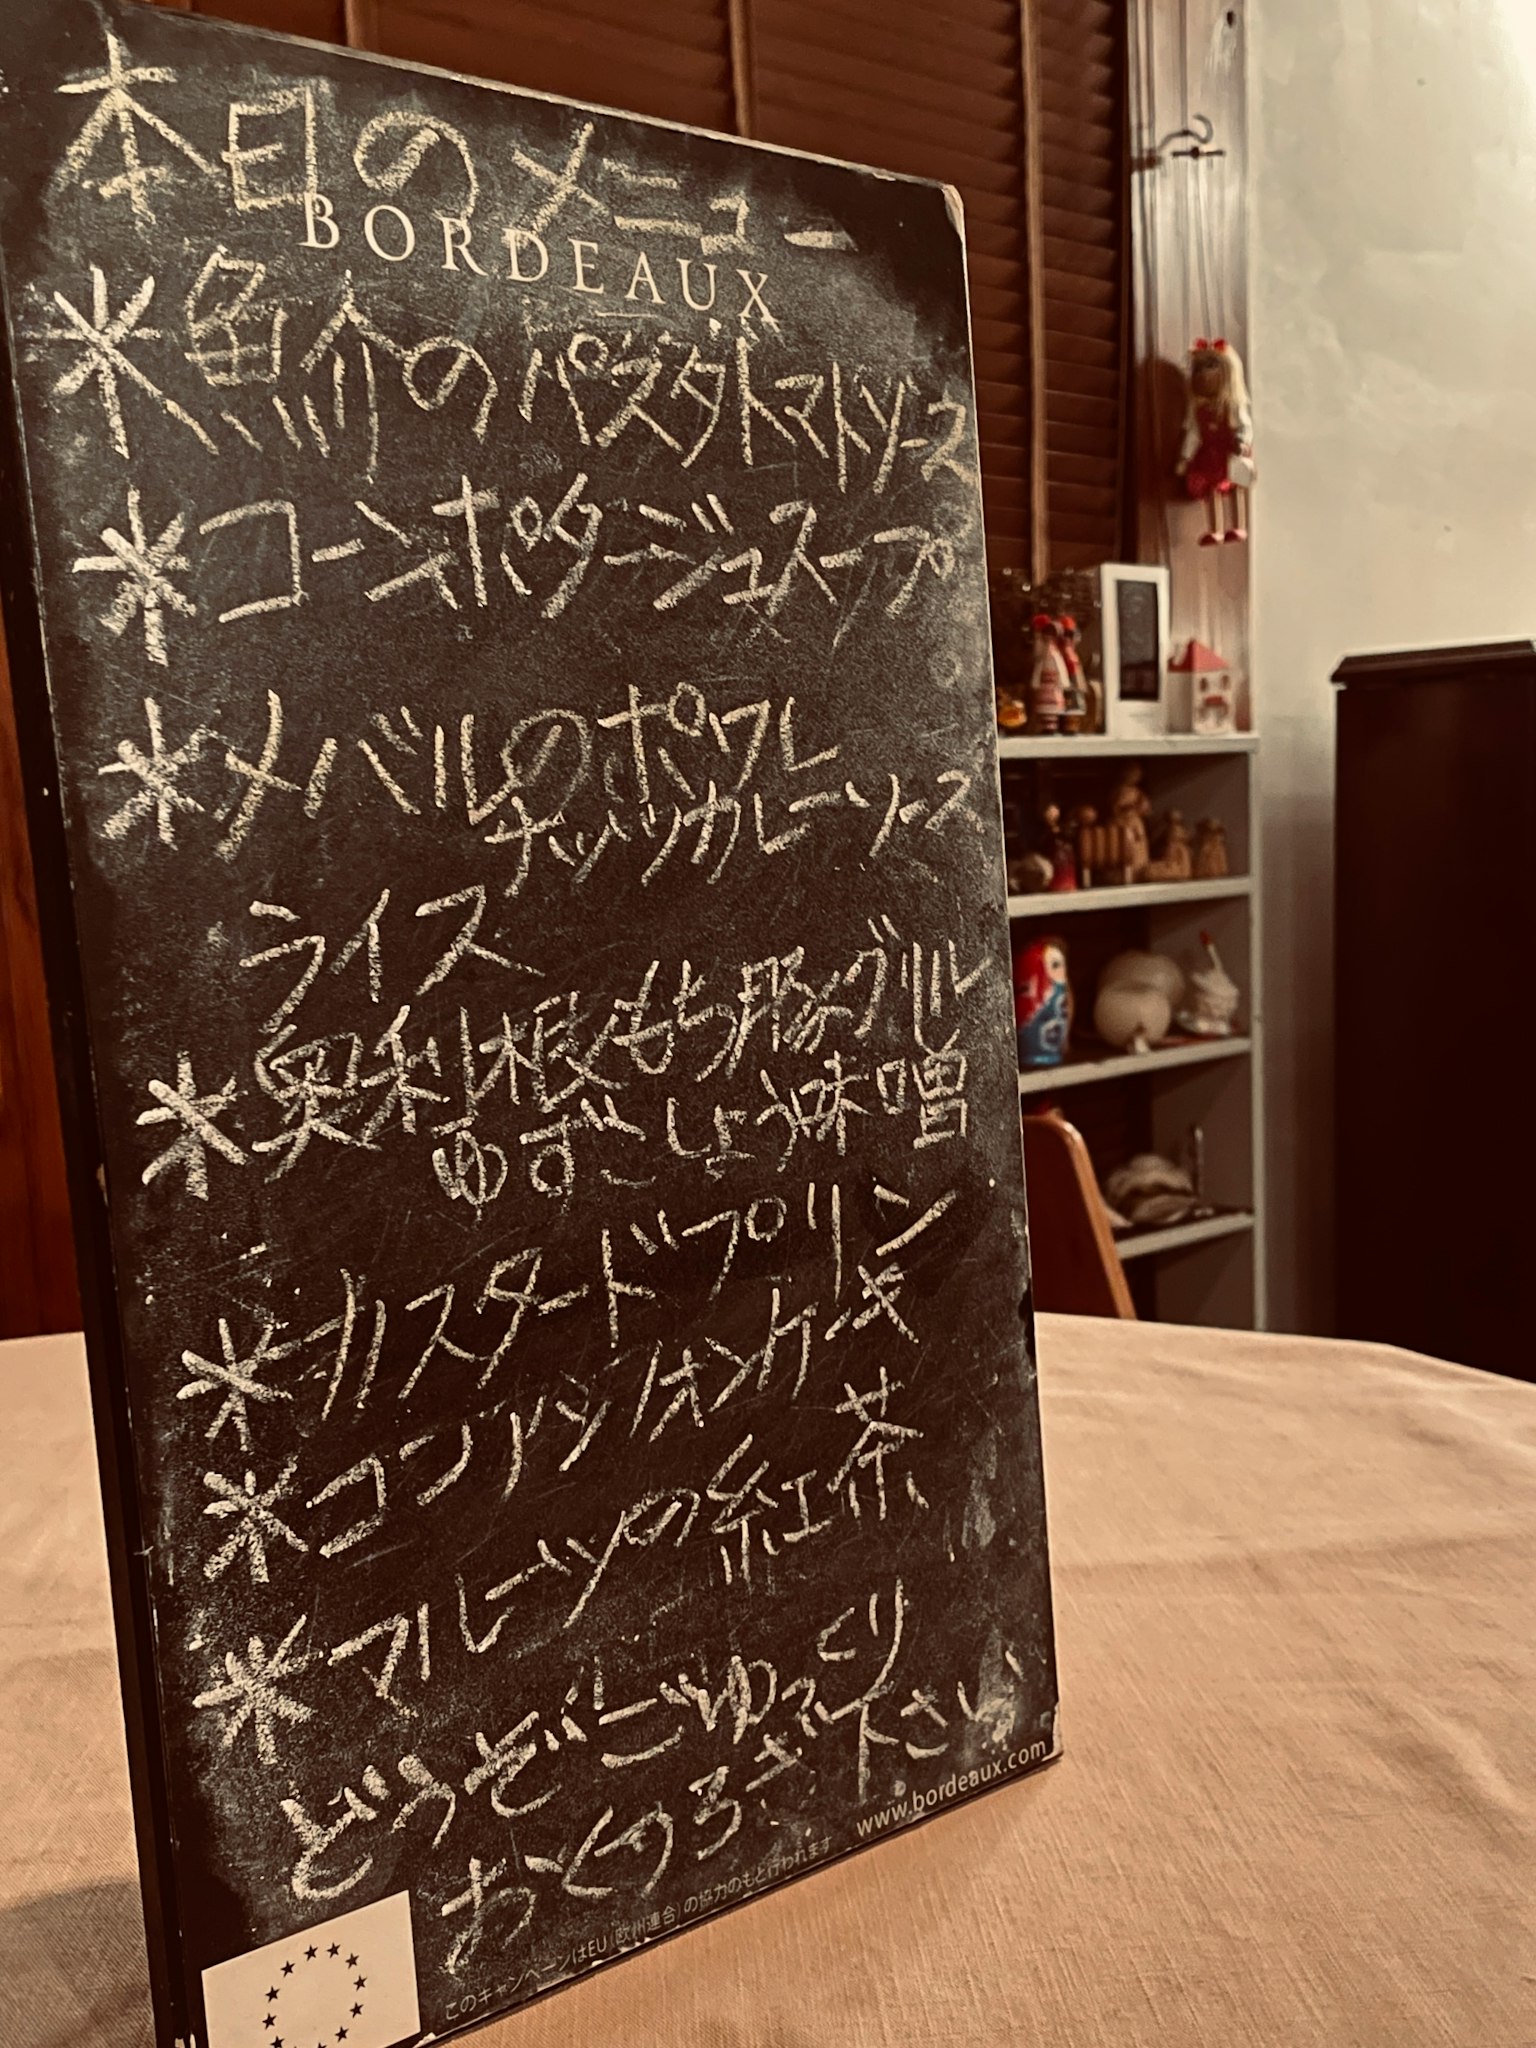 本日のメニュー
BORDEAUX
*魚介のパスタトマトソース
*コーンポタージュスープ
*メバルのポワレ
ナッツカレーソース
ライス
*奥利根もち豚グリル
ゆずこしょう味噌
*カスタードプリン
*コンナツノオンケーキ
*マルーツの紅茶
どうぞごゆっくり
おくつろぎ下さい
www.bordeaux.com
このキャンペーンはEU(欧州連合)の協力のもと行われます